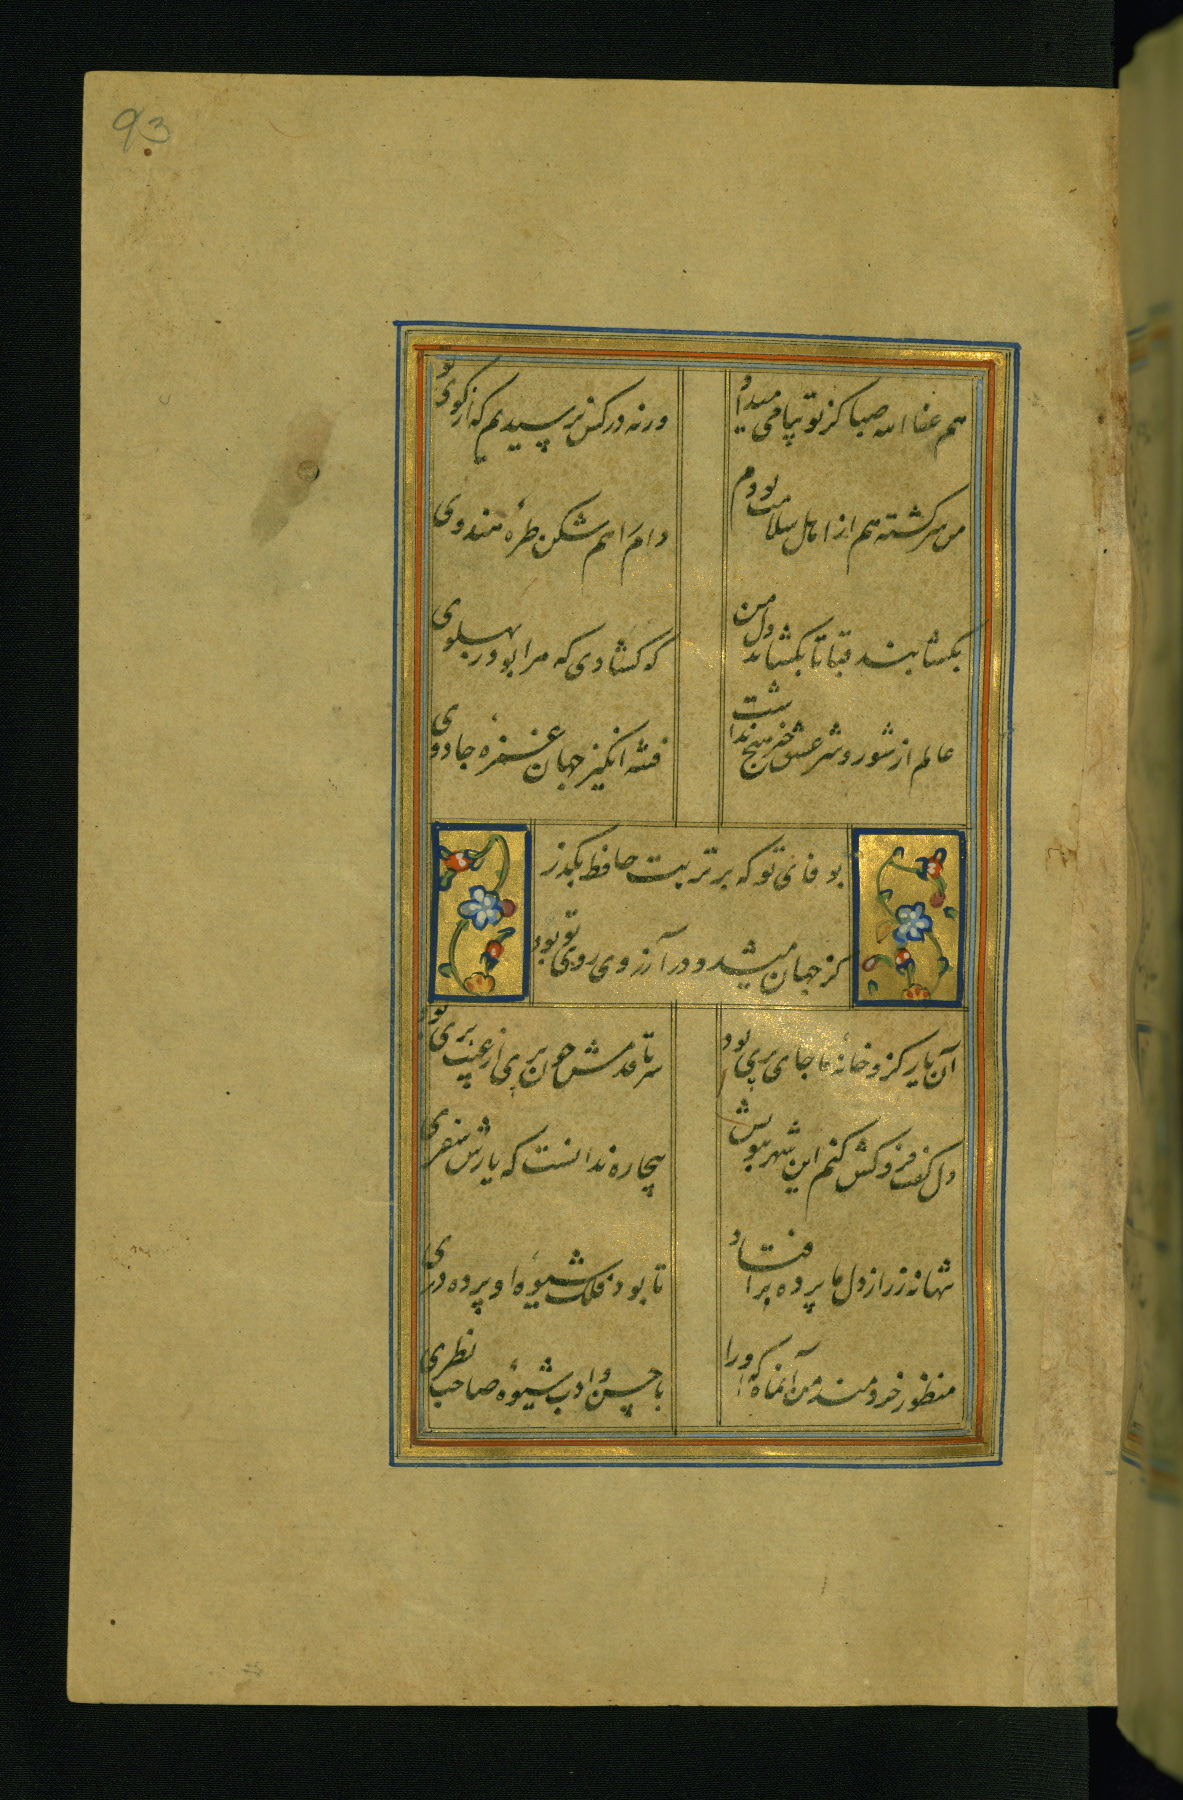 93
هم عفا الله صبا کز تو پیامی میداد
ورنه در کس نرسیدیم که از کوی تو بود
من سرکشته هم از اهل سلامت بودم
دام راهم شکن طره هندوی
بکشا بند قبا تا بکشاید دل من
که کشادی که مرا بود ز پهلوی
عالم از شور و شر عشق خبر هیچ نداشت
فتنه انکیز جهان غمزه جادوی
بوفای تو که بر تربت حافظ بکذر
کز جهان میشد و در آرزوی روی تو بود
آن یار کزو خانه ما جای پری بود
سر تا قدمش چون پری از عیب بری بود
دل کفت فروکش کنم این شهر ببویش
بیچاره ندانست که یارش سفری
تنها نه ز راز دل ما پرده برافتاد
تا بود فلک شیوه او پرده دری
منظور خردمند من آن ماه که او را
با حسن ادب شیوه صاحب نظری